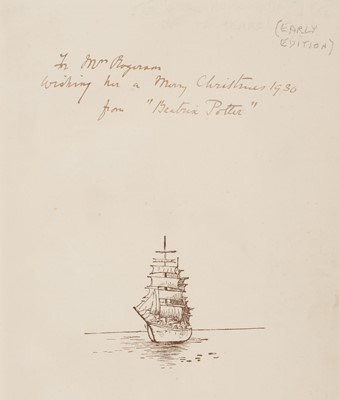 (EARLY
EDITION)
To Mrs Rogerson
wishing her a Merry Christmas 1930
from "Beatrix Potter"